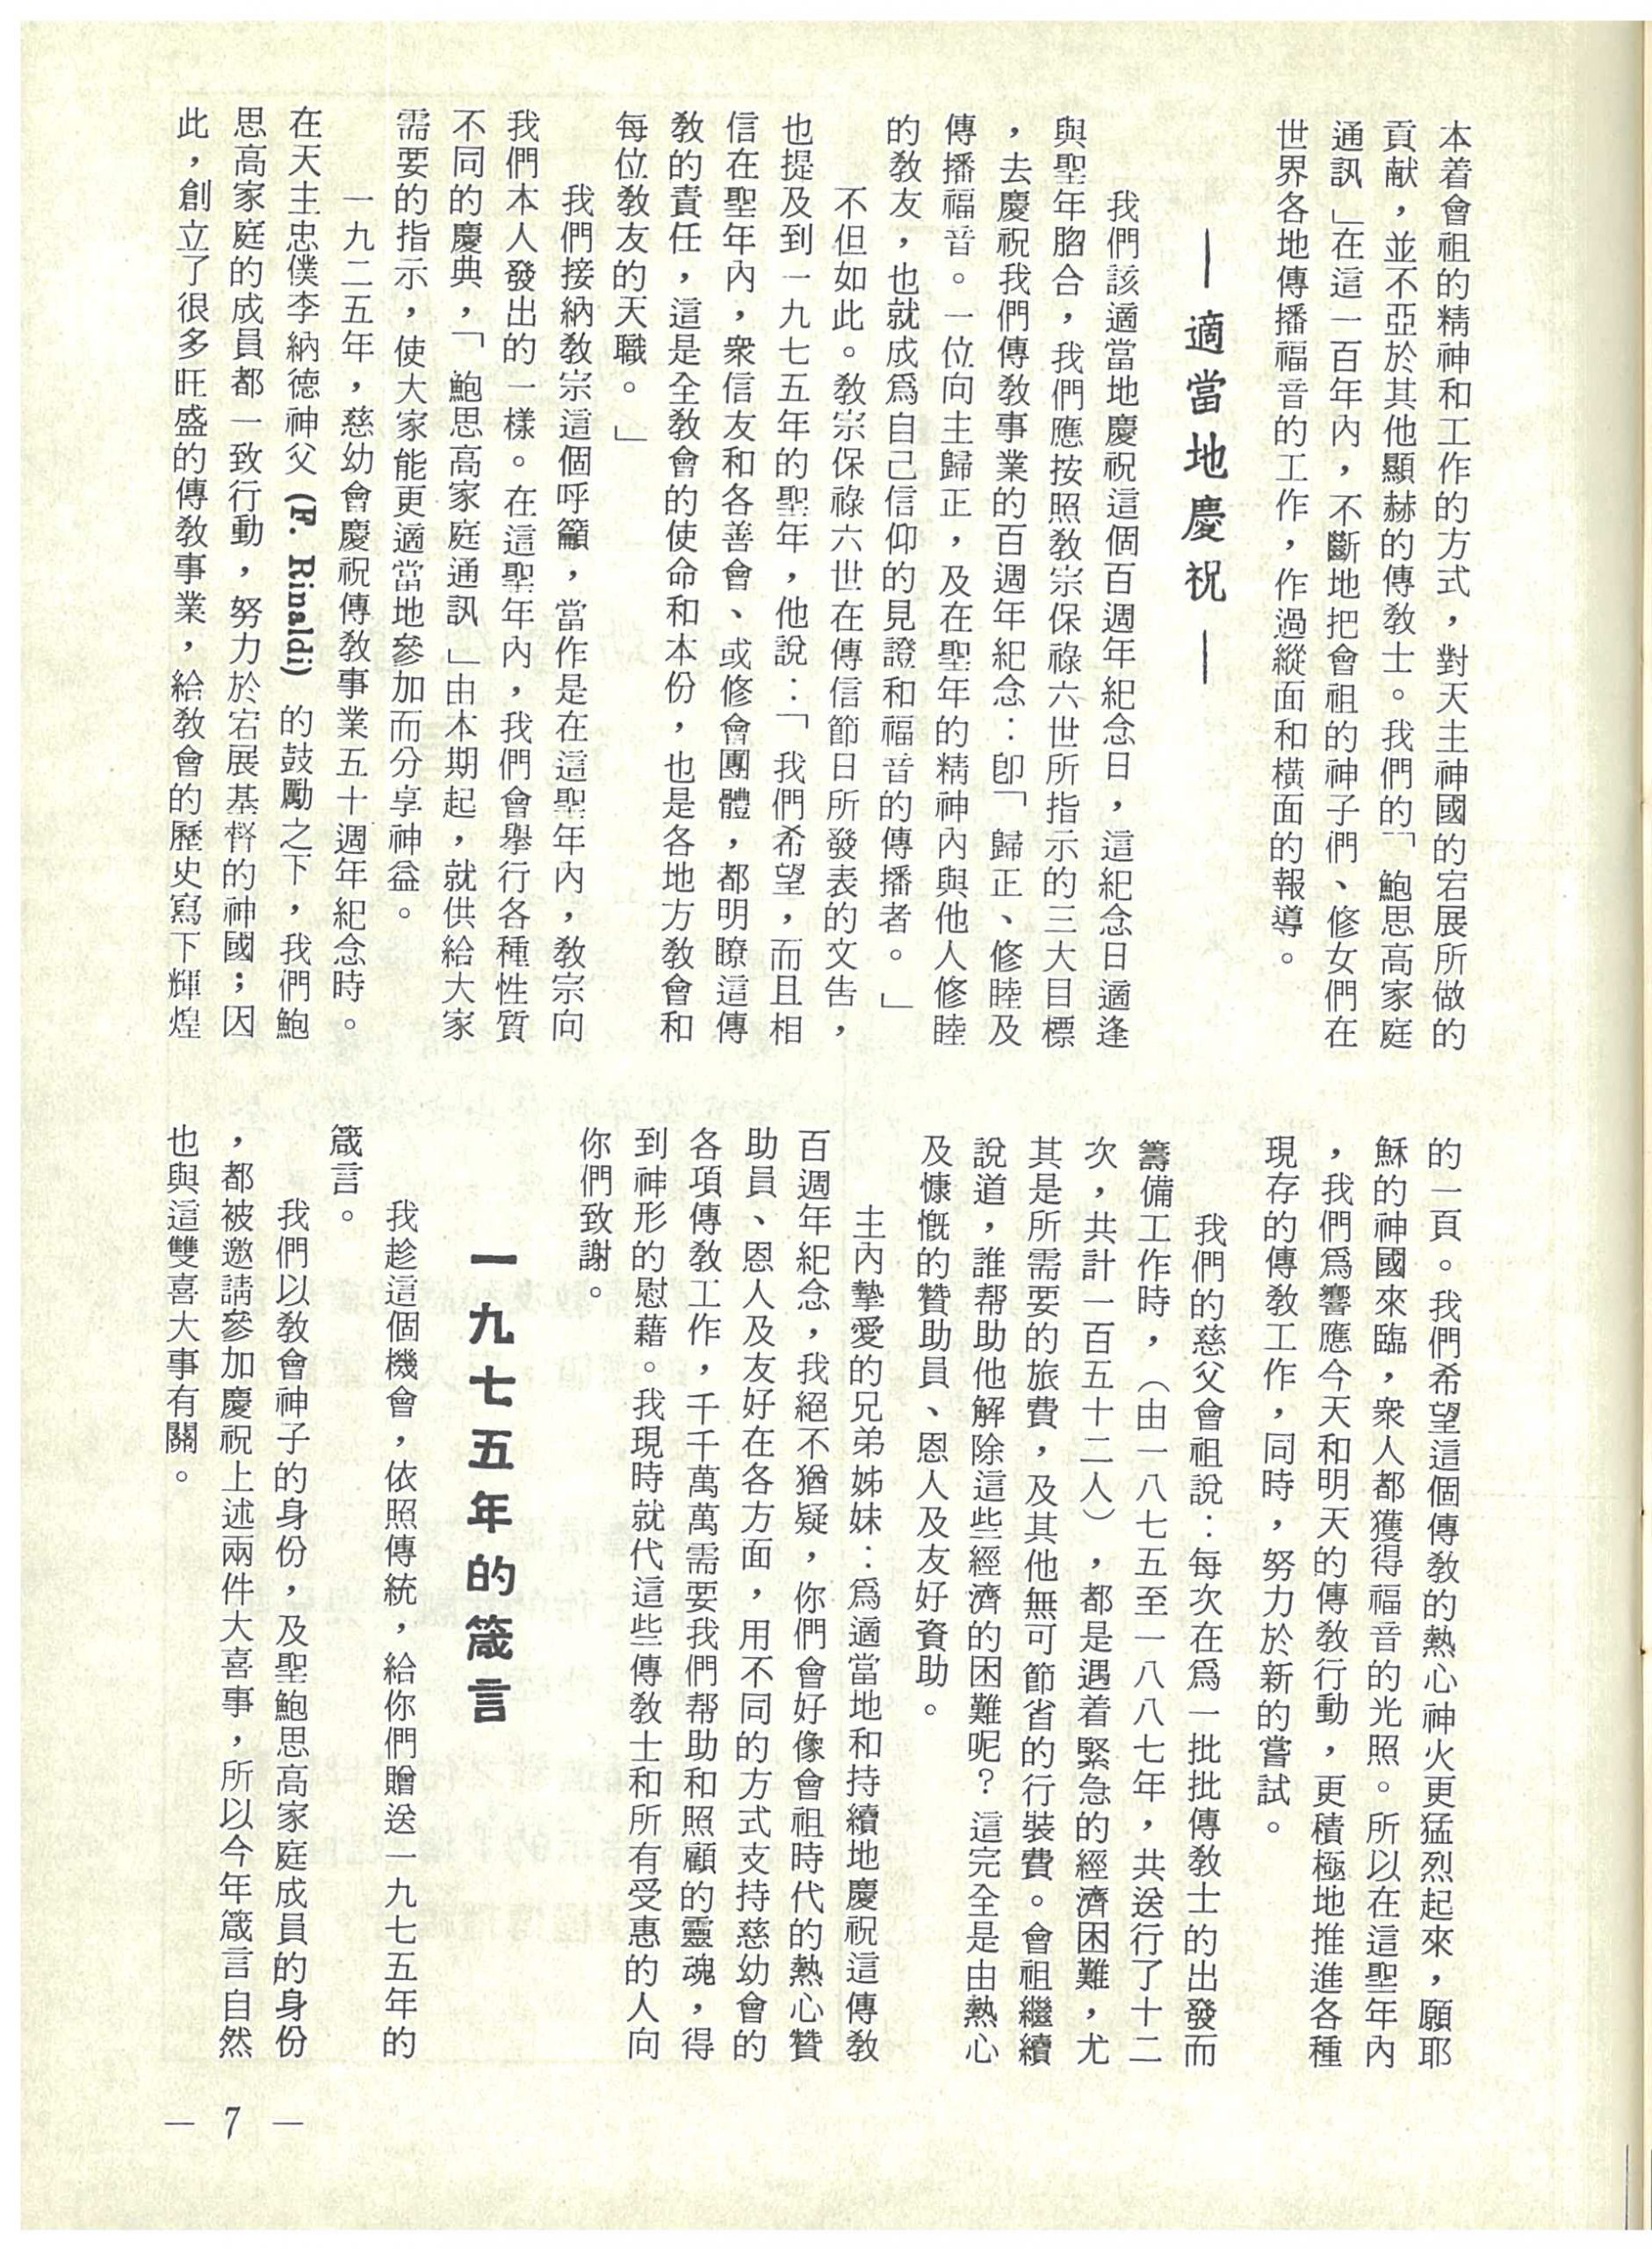 本着會祖的精神和工作的方式，對天主神國的宕展所做的
貢献，並不亞於其他顯赫的傳敎士。我們的「鮑思高家庭
通訊」在這一百年內，不斷地把會祖的神子們、修女們在
世界各地傳播福音的工作，作過縱面和橫面的報導。
—適當地慶祝—
我們該適當地慶祝這個百週年紀念日，這紀念日適逢
與聖年脗合，我們應按照敎宗保祿六世所指示的三大目標
，去慶祝我們傳敎事業的百週年紀念：卽「歸正、修睦及
傳播福音。一位向主歸正，及在聖年的精神內與他人修睦
的敎友，也就成爲自己信仰的見證和福音的傳播者。」
不但如此。敎宗保祿六世在傳信節日所發表的文告，
也提及到一九七五年的聖年，他說：「我們希望，而且相
信在聖年內，衆信友和各善會、或修會團體，都明瞭這傳
敎的責任，這是全敎會的使命和本份，也是各地方敎會和
每位敎友的天職。」
我們接納敎宗這個呼籲，當作是在這聖年內，敎宗向
我們本人發出的一樣。在這聖年內，我們會舉行各種性質
不同的慶典，「鮑思高家庭通訊」由本期起，就供給大家
需要的指示，使大家能更適當地參加而分享神益。
一九二五年，慈幼會慶祝傳敎事業五十週年紀念時。
在天主忠僕李納德神父 (F. Rinaldi) 的鼓勵之下，我們鮑
思高家庭的成員都一致行動，努力於宕展基督的神國；因
此，創立了很多旺盛的傳敎事業，給敎會的歷史寫下輝煌
的一頁。我們希望這個傳敎的熱心神火更猛烈起來，願耶
穌的神國來臨，衆人都獲得福音的光照。所以在這聖年內
，我們爲響應今天和明天的傳敎行動，更積極地推進各種
現存的傳敎工作，同時，努力於新的嘗試。
我們的慈父會祖說：每次在爲一批批傳敎士的出發而
籌備工作時，（由一八七五至一八八七年，共送行了十二
次，共計一百五十二人），都是遇着緊急的經濟困難，尤
其是所需要的旅費，及其他無可節省的行裝費。會祖繼續
說道，誰帮助他解除這些經濟的困難呢？這完全是由熱心
及慷慨的贊助員、恩人及友好資助。
主內摯愛的兄弟姊妹：爲適當地和持續地慶祝這傳敎
百週年紀念，我絕不猶疑，你們會好像會祖時代的熱心贊
助員、恩人及友好在各方面，用不同的方式支持慈幼會的
各項傳敎工作，千千萬萬需要我們帮助和照顧的靈魂，得
到神形的慰藉。我現時就代這些傳敎士和所有受惠的人向
你們致謝。
一九七五年的箴言
我趁這個機會，依照傳統，給你們贈送一九七五年的
箴言。
我們以敎會神子的身份，及聖鮑思高家庭成員的身份
，都被邀請參加慶祝上述兩件大喜事，所以今年箴言自然
也與這雙喜大事有關。
— 7 —